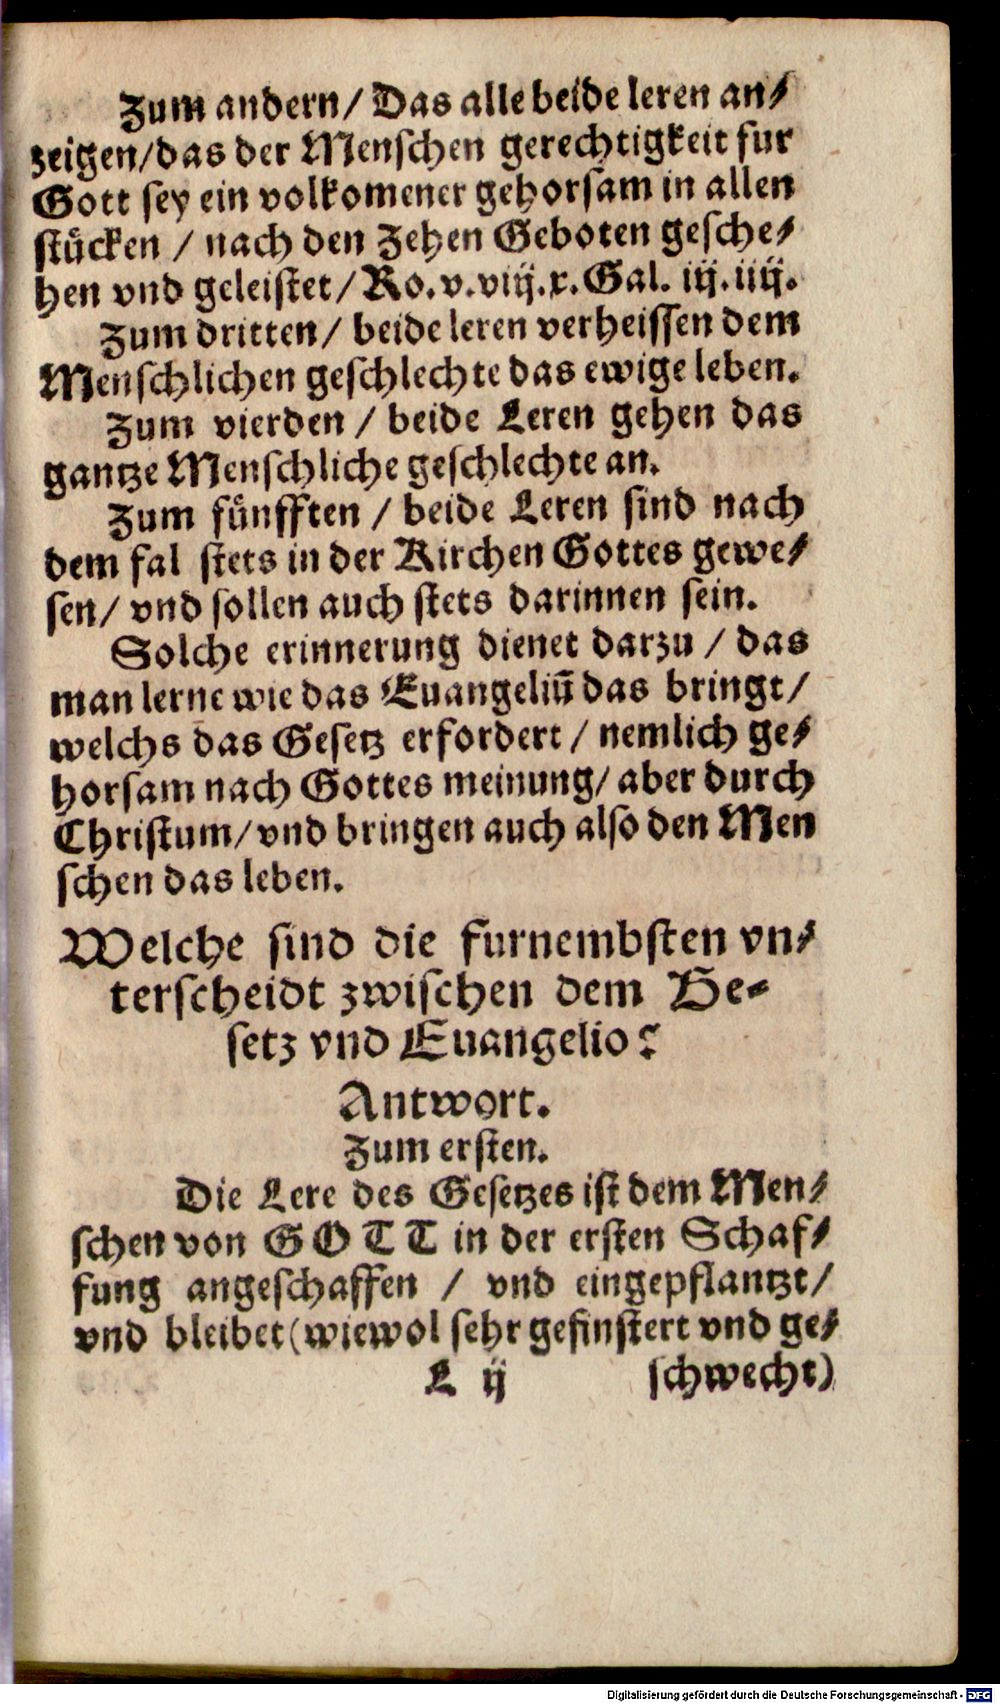 Zum andern/ Das alle beide leren an⸗
zeigen/das der Menschen gerechtigkeit fur
Gott sey ein volkomener gehorsam in allen
stücken / nach den Zehen Geboten gesche⸗
hen vnd geleistet/ Ro. v. viij. x. Gal. iij. iiij.
Zum dritten/ beide leren verheissen dem
Menschlichen geschlechte das ewige leben.
Zum vierden / beide Leren gehen das
gantze Menschliche geschlechte an.
Zum fünfften / beide Leren sind nach
dem fal stets in der Kirchen Gottes gewe⸗
sen/ vnd sollen auch stets darinnen sein.
Solche erinnerung dienet darzu / das
man lerne wie das Euangeliū das bringt/
welchs das Gesetz erfordert / nemlich ge⸗
horsam nach Gottes meinung/ aber durch
Christum/ vnd bringen auch also den Men
schen das leben.
Welche sind die furnembsten vn⸗
terscheidt zwischen dem Ge⸗
setz vnd Euangelio?
Antwort.
Zum ersten.
Die Lere des Gesetzes ist dem Men⸗
schen von GOTT in der ersten Schaf⸗
fung angeschaffen / vnd eingepflantzt/
vnd bleibet (wiewol sehr gefinstert vnd ge⸗
L ij schwecht)
Digitalisierung gefördert durch die Deutsche Forschungsgemeinschaft - DFG